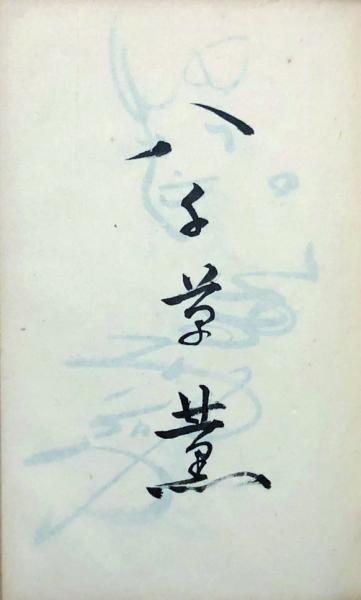 八千草薫